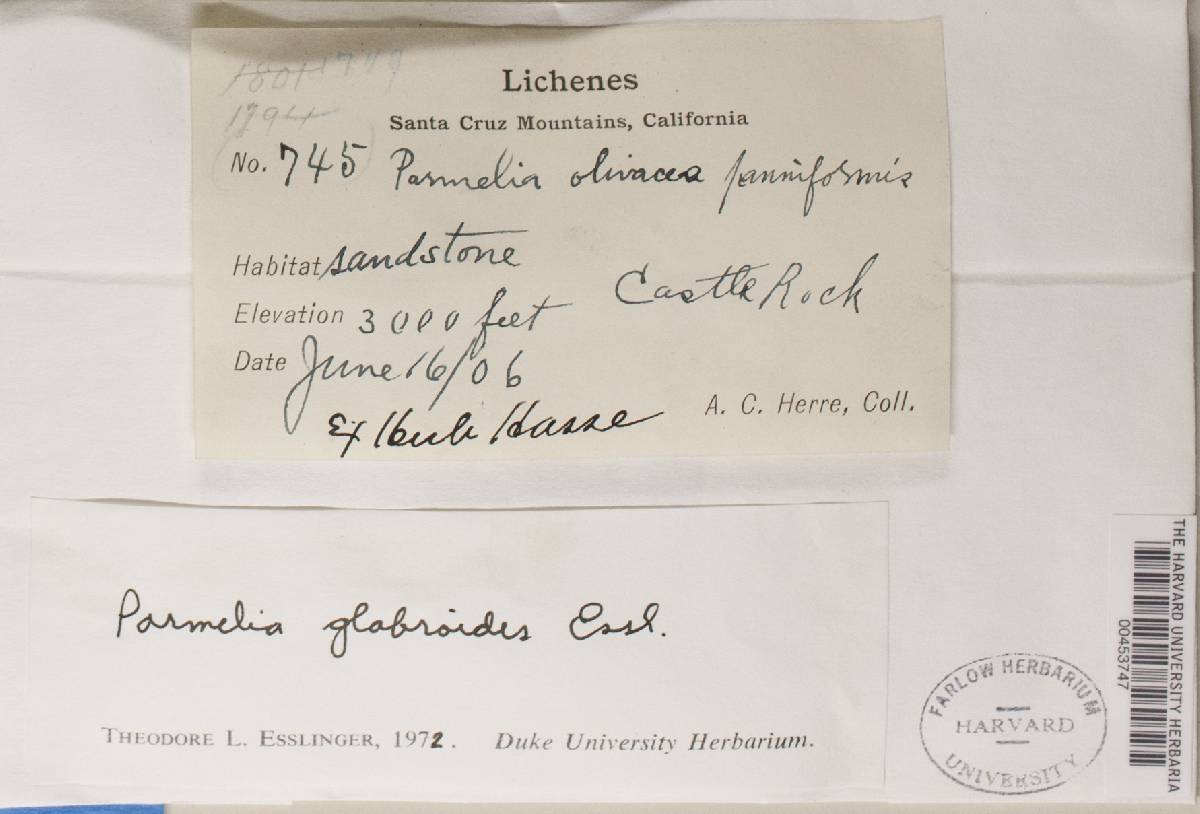 1801 1779
1794
Lichenes
Santa Cruz Mountains, California
No. 745 Parmelia olivacea panniformis
Habitat sandstone
Castle Rock
Elevation 3000 feet
Date June 16/06
A. C. Herre, Coll.
Ex Herb Hasse
Parmelia glabroides Essl.
THEODORE L. ESSLINGER, 1972. Duke University Herbarium.
FARLOW HERBARIUM
HARVARD
UNIVERSITY
THE HARVARD UNIVERSITY HERBARIA
00453747